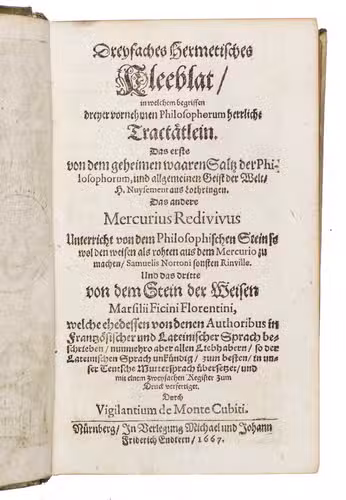 Dreyfaches Hermetisches
Kleeblat/
in welchem begriffen
dreyer vornehmen Philosophorum herrliche
Tractätlein.
Das erste
von dem geheimen waaren Saltz der Phi-
losophorum, und allgemeinen Geist der Welt/
H. Nuysement aus Lothringen.
Das andere
Mercurius Redivivus
Unterricht von dem Philosophischen Stein so
wol den weisen als rohten aus dem Mercurio zu
machen/ Samuelis Nortoni sonsten Rinville.
Und das dritte
von dem Stein der Weisen
Marsilii Ficini Florentini,
welche ehedessen von denen Authoribus in
Französischer und Lateinischer Sprach be-
schrieben/ nunmehro aber allen Liebhabern/ so der
Lateinischen Sprach unkündig/ zum besten/ in un-
ser Teutsche Muttersprach übersetzet/ und
mit einem zweyfachen Register zum
Druck verfertiget.
Durch
Vigilantium de Monte Cubiti.
Nürnberg/ In Verlegung Michael und Johann
Friderich Endtern/ 1667.